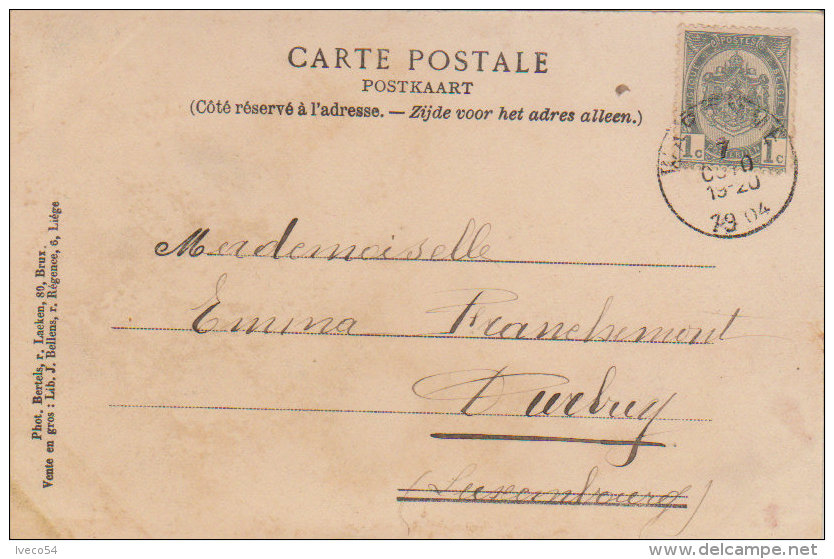 CARTE POSTALE
POSTKAART
(Côté réservé à l'adresse. — Zijde voor het adres alleen.)
POSTES
1c 1c
7
19-20
1904
Phot. Bertels, r. Laeken, 80, Brux.
Vente en gros : Lib. J. Bellens, r. Régence, 6, Liége
Mademoiselle
Emma Franchimont
Durbuy
(Luxembourg)
Iveco54
delcampe.net